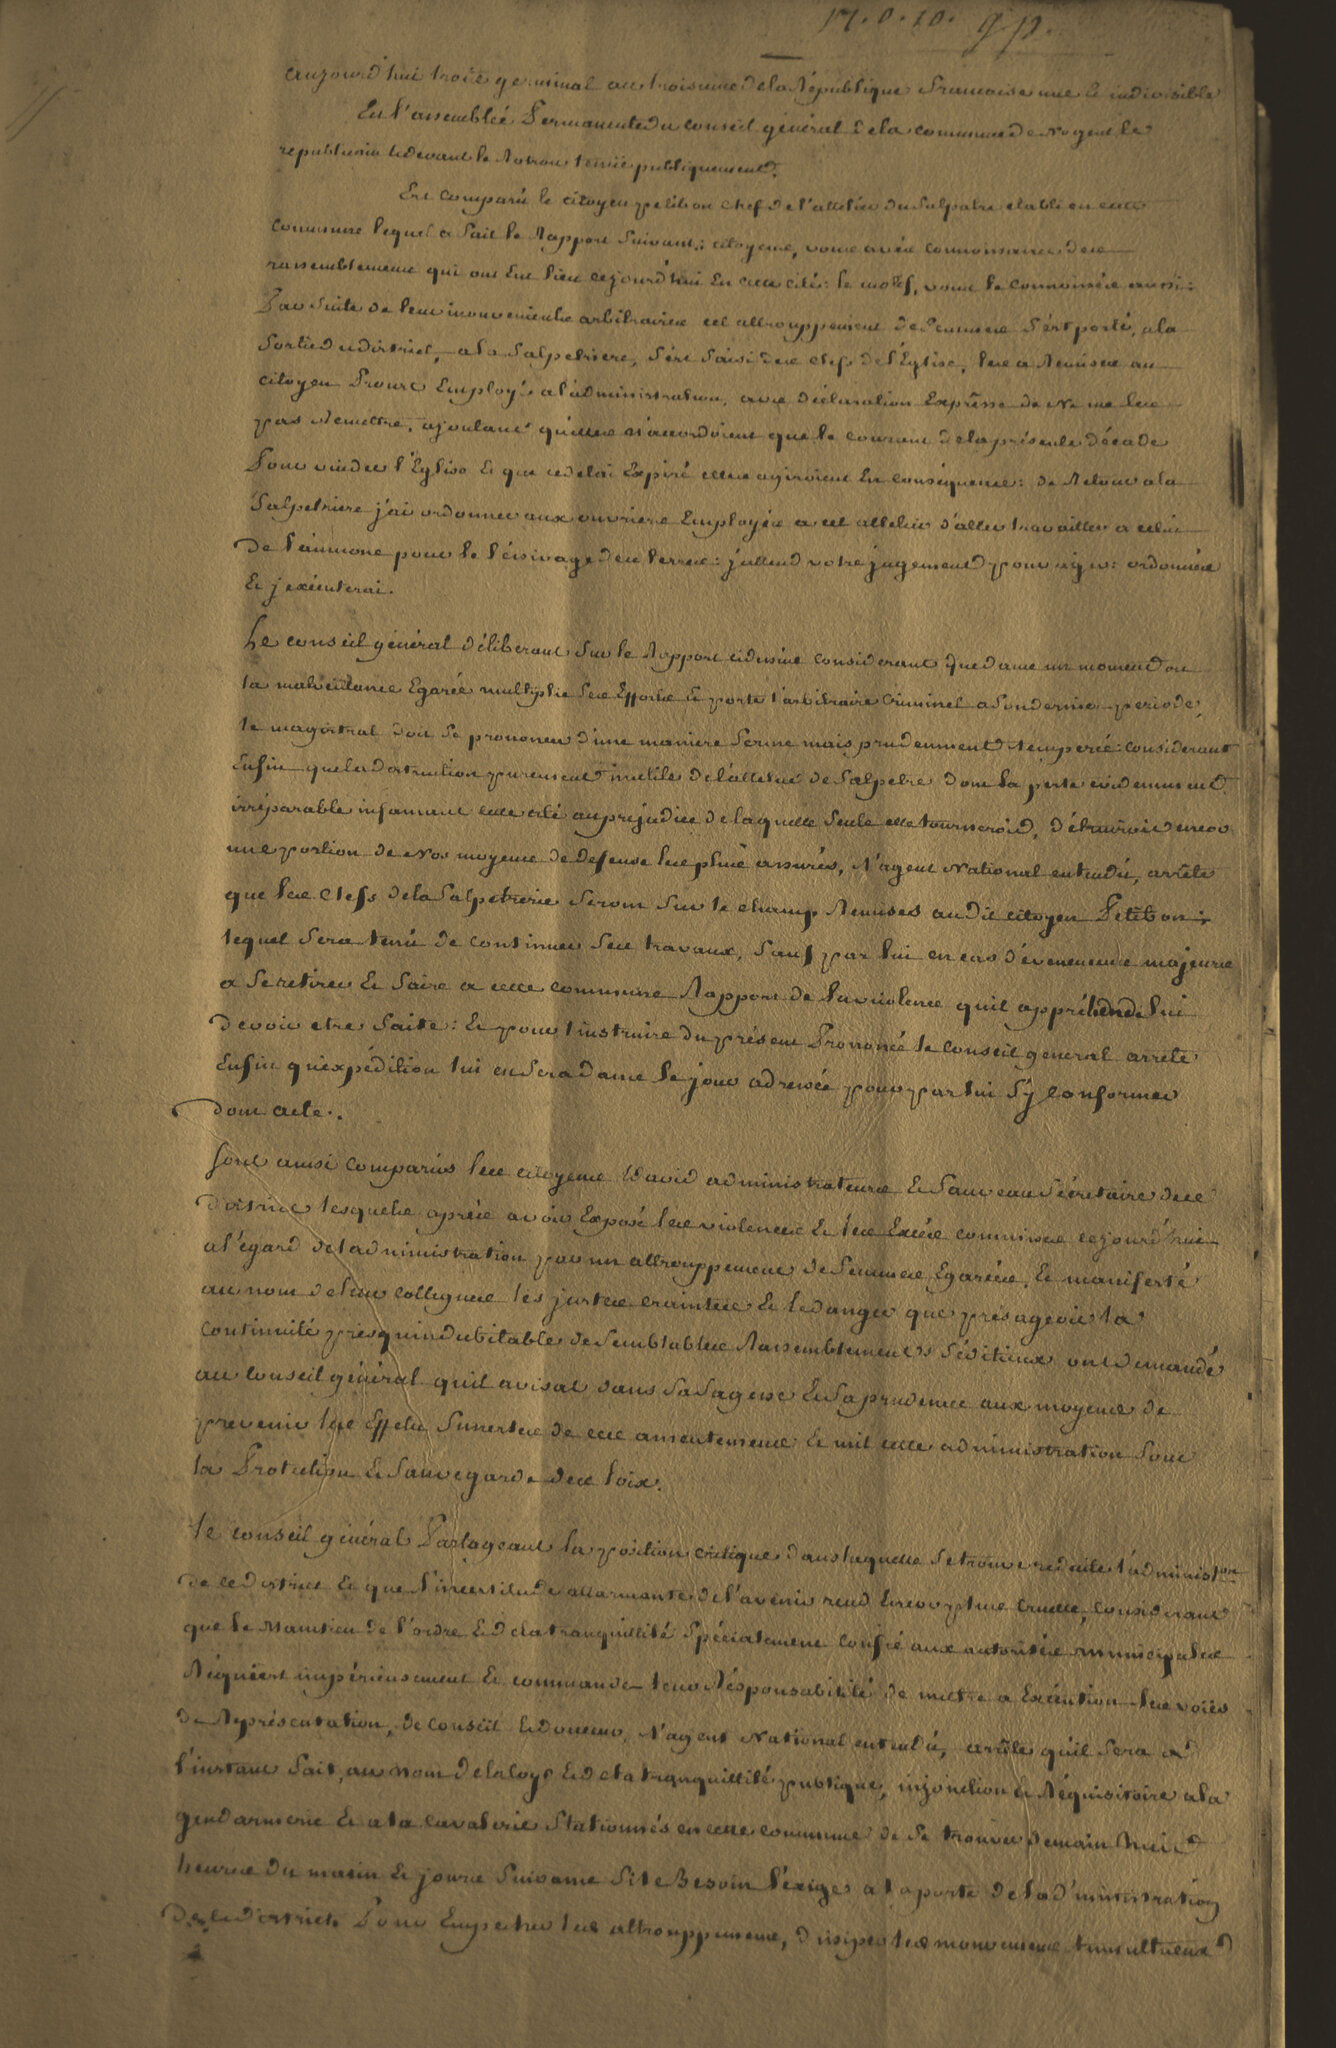 aujourd'hui trois germinal an troisieme de la République francaise une et indivisible
En l'assemblée Permanente du conseil général de la commune de Nogent le
republicain cidevant le Rotrou tenue publiquement.
Est comparu le citoyen petibon chef de l'attelier du Salpetre etabli en cette
commune lequel a fait le Rapport Suivant: citoyens, vous avés connoissance des
rassemblements qui ont Eut lieu cejourd'hui En cette cité: le motif, vous le connoissés aussi:
Par Suite de leur mouvements arbitraires cet attrouppement de femmes s'est porté, a la
Sortie du district, a la Salpetriere, s'est Saisi des clefs de l'Eglise, les a Remises au
citoyen Proust Employé a l'administration, avec déclaration Expresse de Ne me les
pas Remettre, ajoutant qu'elles n'accordoient que le courant de la présente décade
Pour vuider l'Eglise Et que ce delai Expiré elles agiroient En conséquence: de Retour a la
Salpetriere j'ai ordonné aux ouvriers Employés a cet attelier d'aller travailler a celui
de l'aumone pour le lésivage des terres: j'attend votre jugement pour agir: ordonnés
Et j'exécuterai.
Le conseil général déliberant Sur le Rapport cidessus considerant que dans un moment ou
la malveillance Egarée multiplie Ses Efforts Et porte l'arbitraire criminel a Son dernier periode,
le magistrat doit Se prononcer d'une maniere ferme mais prudemment temperée: considerant
Enfin que la destruction purement inutile de l'attelier de Salpetre dont la perte evidemment
irréparable infamant cette cité au prejudice de laquelle Seule elle tourneroit, détruiroit encor
une portion de Nos moyens de defense les plus assurés, l'agent National entendu, arrête
que les clefs de la Salpetrerie Seront Sur le champ Remises audit citoyen Petibon;
lequel Sera tenu de continuer Ses travaux, Sauf par lui en cas d'évenements majeurs
a Se retirer Et faire a cette commune Rapport de la violence quil appréhende lui
devoir etre faite: Et pour l'instruire du présent Prononcé le conseil general arrete
Enfin qu'expédition lui en Sera dans le jour adressée pour par lui S'y conformer
dont acte.
Sont aussi comparus les citoyens David administrateur Et Sauveau Sécretaire de ce
district lesquels après avoir Exposé les violences Et les Excès commises cejourd'hui
a l'égard de l'administration par un attrouppement de femmes Egarées, Et manifesté
au nom de leur collegues les justes craintes Et le danger que présageoit la
continuité presqu'indubitable de Semblables Rassemblements Séditieux ont demandé
au conseil général quil avisat dans Sa Sagesse Et Sa prudence aux moyens de
prevenir les Effets funestes de ces ameutements Et mit cette administration Sous
la Protection Et Sauvegarde des loix.
le conseil général Partageant la position critique dans laquelle Se trouve reduite l'administ.on
de ce district Et que l'incertitude allarmante de l'avenir rend Encor plus cruelle, considerant
que le Maintien de l'ordre Et de la tranquillité Spécialement confié aux autorités municipales
Réquiert impérieusement Et commande leur Résponsabilité de mettre a Exécution les voies
de Représentation, de conseil Et douceur, l'agent National entendu, arrête qu'il Sera a
l'instant fait, au nom de la loye Et de la tranquillité publique, injonction Et Réquisitoire a la
gendarmerie Et a la cavalerie Stationnés en cette commune de Se trouver demain huit
heures du matin Et jours Suivants Si le Besoin l'exige a la porte de l'administration
de ce district. Pour Empecher les attrouppements, dissiper les mouvements tumultueux